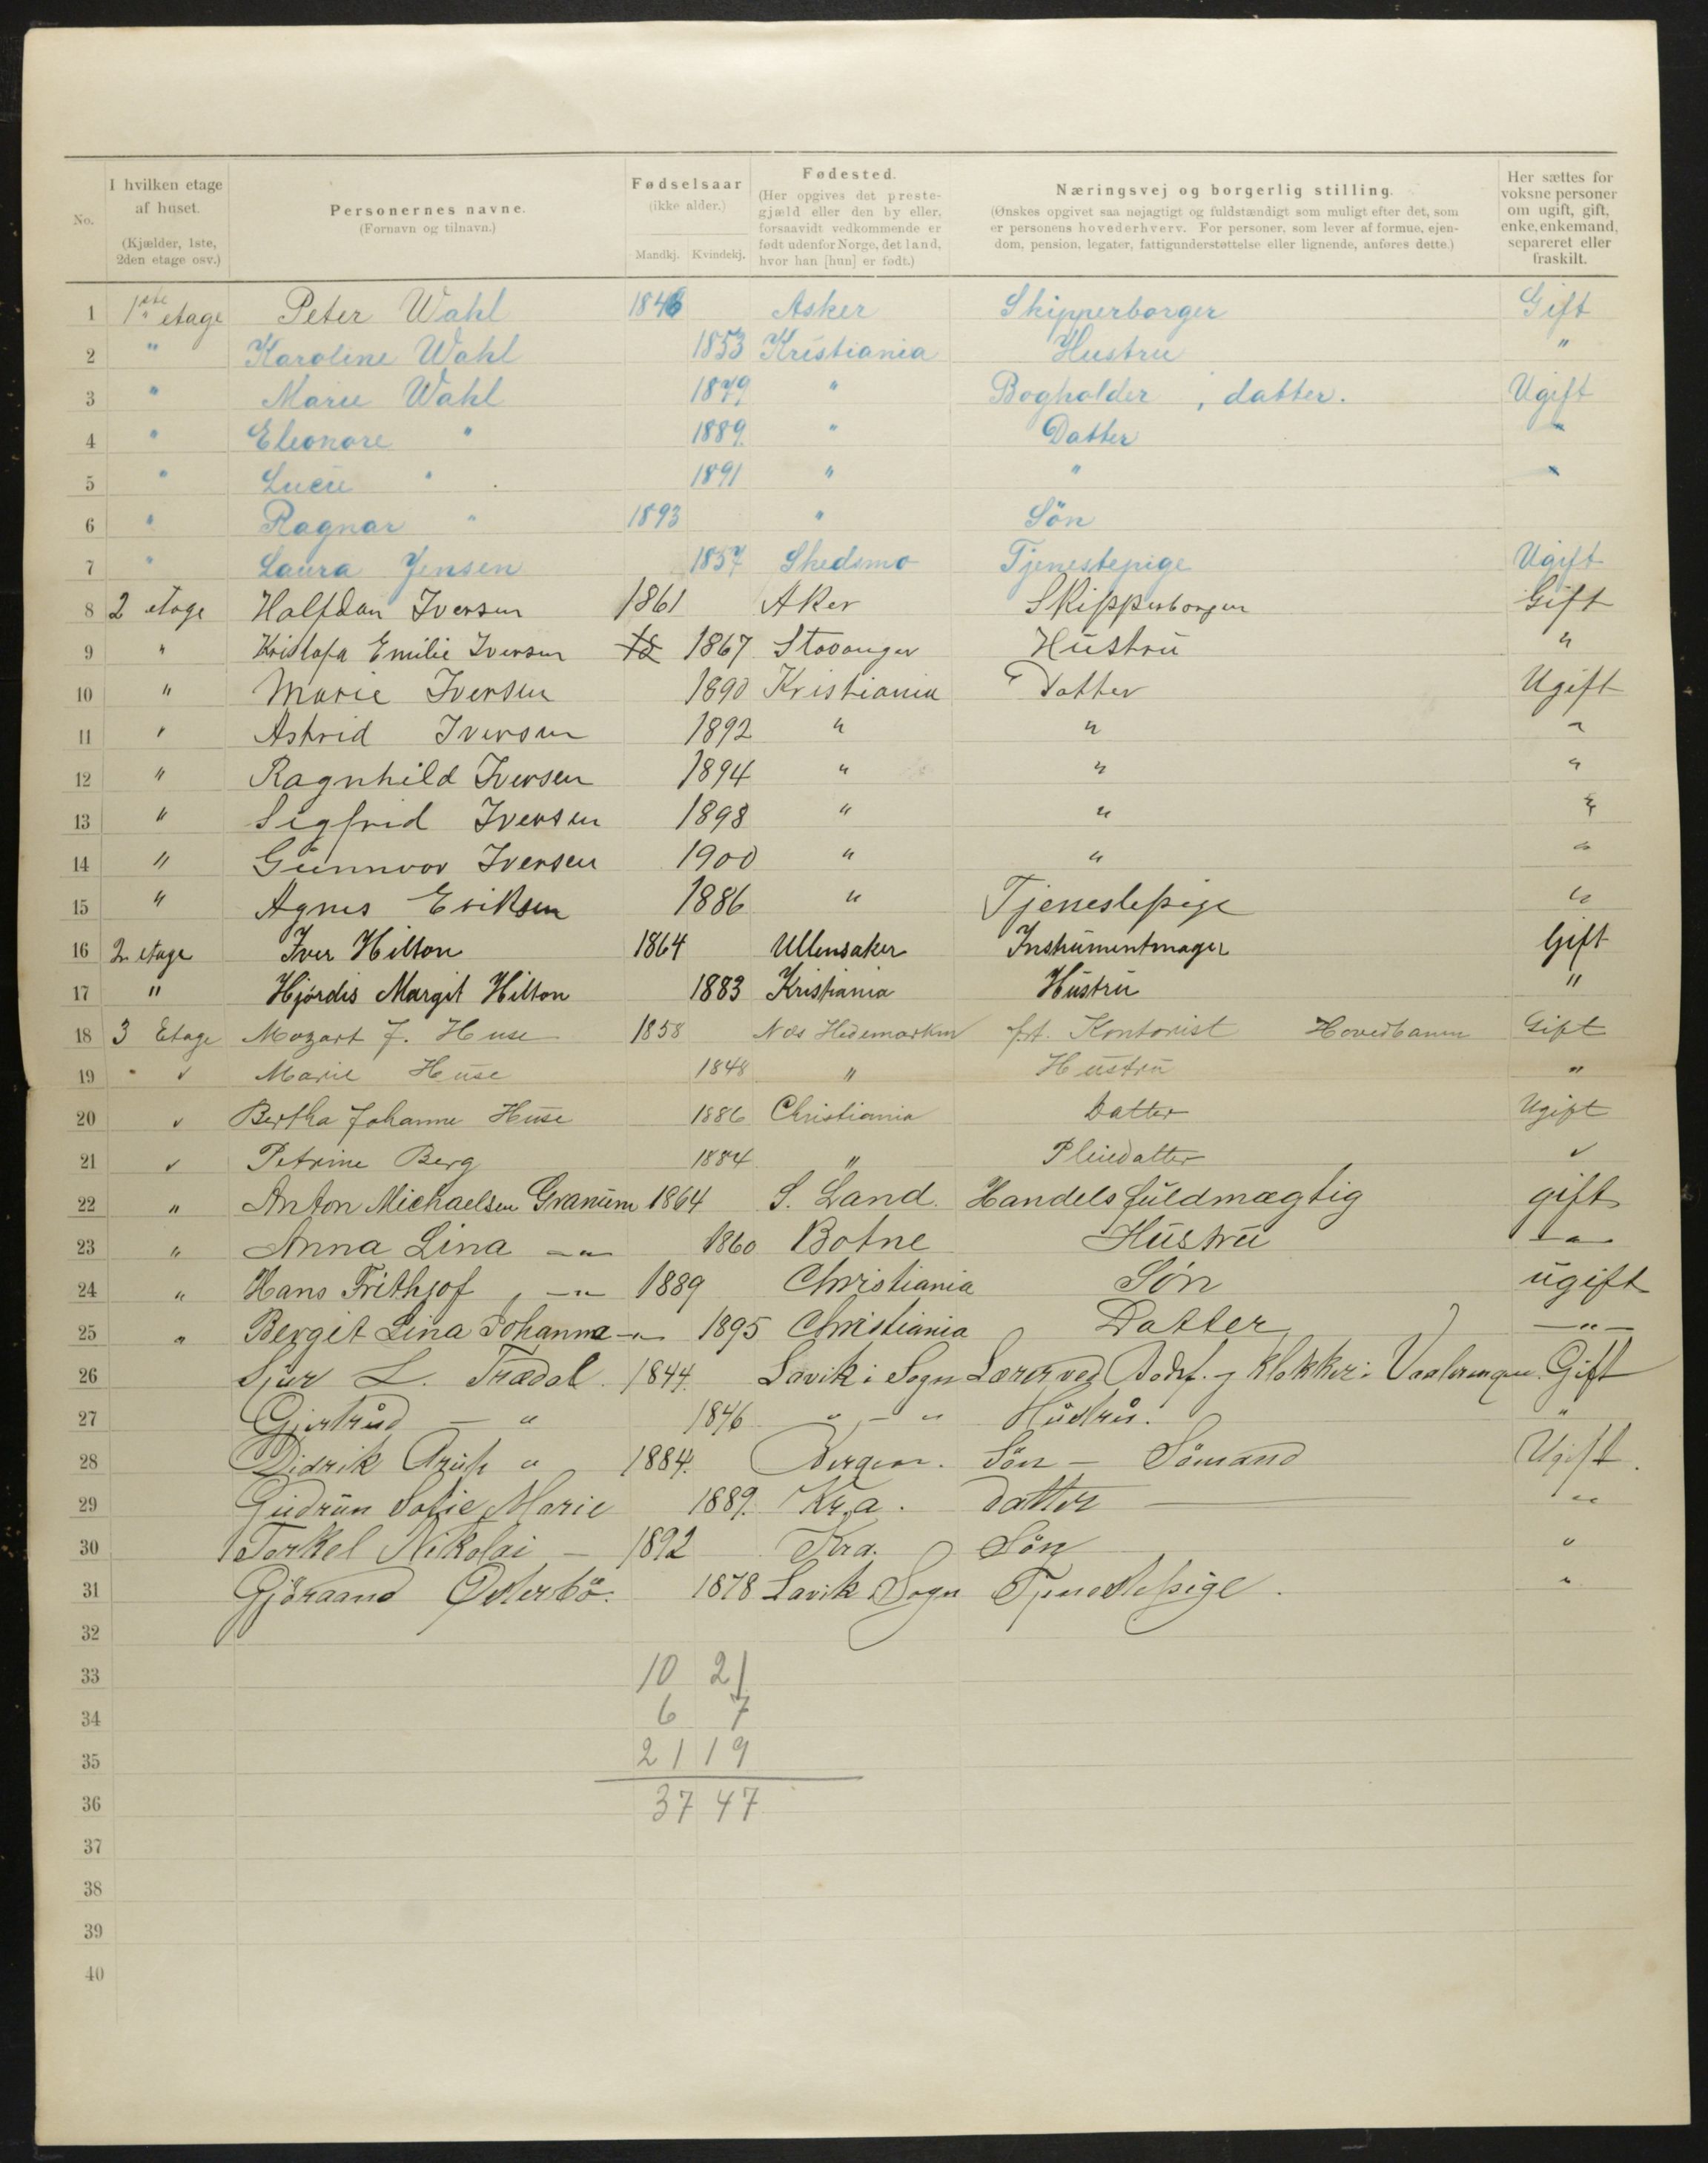 No.
I hvilken etage af huset.
(Kjælder, 1ste, 2den etage osv.)
Personernes navne.
(Fornavn og tilnavn.)
Fødselsaar
(ikke alder.)
Mandkj. Kvindekj.
Fødested.
(Her opgives det prestegjæld eller den by eller, forsaavidt vedkommende er født udenfor Norge, det land, hvor han [hun] er født.)
Næringsvej og borgerlig stilling.
(Ønskes opgivet saa nøjagtigt og fuldstændigt som muligt efter det, som er personens hovederhverv. For personer, som lever af formue, ejendom, pension, legater, fattigunderstøttelse eller lignende, anføres dette.)
Her sættes for voksne personer om ugift, gift, enke, enkemand, separeret eller fraskilt.
1 1ste etage Peter Wahl 1846 Asker Skipperborger Gift
2 " Karoline Wahl 1853 Kristiania Hustru "
3 " Marie Wahl 1879 " Bogholder , datter. Ugift
4 " Eleonore " 1889. " Datter "
5 " Lucie " 1891 " " "
6 " Ragnar " 1893 " Sön
7 " Laura Jensen 1857 Skedsmo Tjenestepige Ugift
8 2 etage Halfdan Iversen 1861 Aker Skipperborger Gift
9 " Kristofa Emilie Iversen 1867 Stavanger Hustru "
10 " Marie Iversen 1890 Kristiania Datter Ugift
11 " Astrid Iversen 1892 " " "
12 " Ragnhild Iversen 1894 " " "
13 " Sigfrid Iversen 1898 " " "
14 " Gunnvor Iversen 1900 " " "
15 " Agnes Eriksen 1886 " Tjenestepige "
16 2 etage Iver Hilton 1864 Ullensaker Instrumentmager Gift
17 " Hjördis Margit Hilton 1883 Kristiania Hustru "
18 3 Etage Mozart J. Huse 1858 Næs Hedemarken frt. Kontorist Hovedbanen Gift
19 " " Marie Huse 1848 " Hustru "
20 " Bertha Johanne Huse 1886 Christiania Datter Ugift
21 " Petrine Berg 1884 " Pleiedatter "
22 " Anton Michaelsen Granum 1864 S. Land. Handelsfuldmægtig gift
23 " Anna Lina —"— 1860 Botne Hustru —"—
24 " Hans Frithjof , —"— 1889 Christiania Sön ugift
25 " Bergit Lina Johanna —"— 1895 Christiania Datter —"—
26 Sjur L. Trædal. 1844. Lavik i Sogn Lærer ved klokker i Vaalerengen. Gift
27 Gjertrud — " 1846 " — " Hustru. "
28 Didrik Arup " 1884. Bergen. Sön — Sömand Ugift.
29 Gudrun Sofie Marie 1889. Kr.a. Datter "
30 Torkel Nikolai — 1892 Kra. Sön "
31 Gjöraand Österbö. 1878 Lavik i Sogn Tjenestepige. "
32
33 10 21
34 6 7
35 21 19
36 37 47
37
38
39
40